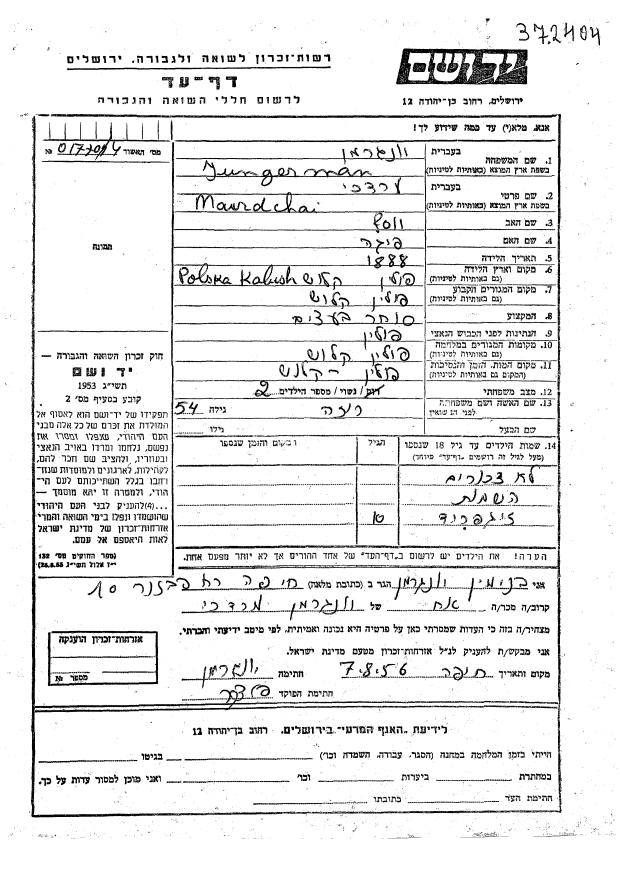 372404
רשות-זכרון לשואה ולגבורה, ירושלים
דף-עד
לרשום חללי השואה והגבורה
יד ושם
ירושלים, רחוב בן-יהודה 12
אנא, מלא(י) עד כמה שידוע לך!
מס' האשור
תמונה
1. שם המשפחה בעברית
בשפת ארץ המוצא (באותיות לטיניות) Jungerman
2. שם פרטי בעברית
בשפת ארץ המוצא (באותיות לטיניות) Maurdchai
3. שם האב
4. שם האם פיגה
5. תאריך הלידה 1888
6. מקום וארץ הלידה (גם באותיות לטיניות) פולין קלוש Polska Kalush
7. מקום המגורים הקבוע (גם באותיות לטיניות) פולין קלוש
8. המקצוע סוחר בעצים
9. הנתינות לפני הכבוש הנאצי פולין
10. מקומות המגורים במלחמה (גם באותיות לטיניות) פולין קלוש
11. מקום המות, הזמן והנסיבות (המקום גם באותיות לטיניות) פולין - קלוש
12. מצב משפחתי רווק / נשוי / מספר הילדים 2
13. שם האשה ושם משפחתה לפני הנשואין רוזה גילה 54
שם הבעל גילו
14. שמות הילדים עד גיל 18 שנספו (מעל לגיל זה רושמים "דף-עד" מיוחד) הגיל מקום והזמן שנספו
לא זכורים
השמות
זיגפריד
הערה! את הילדים יש לרשום ב"דף-העד" של אחד ההורים אך לא יותר מפעם אחת.
חוק זכרון השואה והגבורה —
יד ושם
תשי"ג 1953
קובע בסעיף מס' 2
תפקידו של יד-ושם הוא לאסוף אל
המולדת את זכרם של כל אלה מבני
העם היהודי, שנפלו ומסרו את
נפשם, נלחמו ומרדו באויב הנאצי
ובעוזריו, ולהציב שם וזכר להם,
לקהילות, לארגונים ולמוסדות שנח-
רבו בגלל השתייכותם לעם היהו-
הודי, ולמטרה זו יהא מוסמך —
...(4) להעניק לבני העם היהודי
שהושמדו ונפלו בימי השואה והמרי
אזרחות-זכרון של מדינת ישראל
לאות היאספם אל עמם.
(ספר החוקים מס' 132
י"ז אלול תשי"ג, 28.8.53)
אני בנימין יונגרמן הגר ב (כתובת מלאה) חיפה
קרוב/ה מכר/ה אח של יונגרמן מרדכי
מצהיר/ה בזה כי העדות שמסרתי כאן על פרטיה היא נכונה ואמיתית, לפי מיטב ידיעתי והכרתי.
אני מבקש/ת להעניק לנ"ל אזרחות-זכרון מטעם מדינת ישראל.
מקום ותאריך חיפה 7.8.56 חתימה יונגרמן
חתימת הפוקד
אזרחות-זכרון הוענקה
מספר №
לידיעת "האגף המדעי" בירושלים, רחוב בן-יהודה 12
הייתי בזמן המלחמה במחנה (הסגר, עבודה, השמדה וכו') בגיטו
במחתרת ביערות וכו' ואני מוכן למסור עדות על כך.
חתימת העד כתובתו